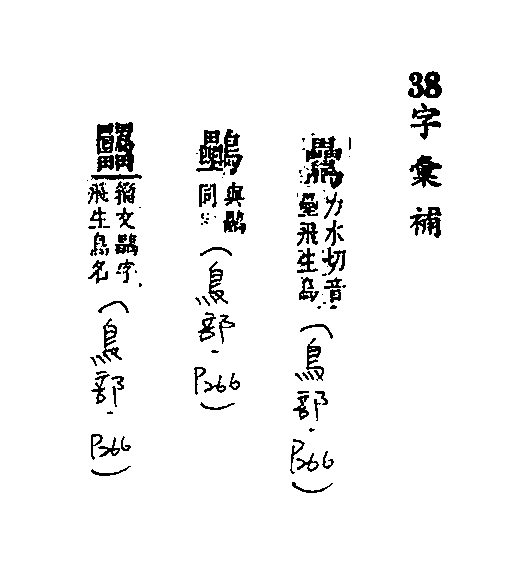 38字彙補
力水切音
壘飛生鳥
(鳥部.P266)
鸓與鸓
同
(鳥部.P266)
籀文鸓字
飛生鳥名
(鳥部.P266)